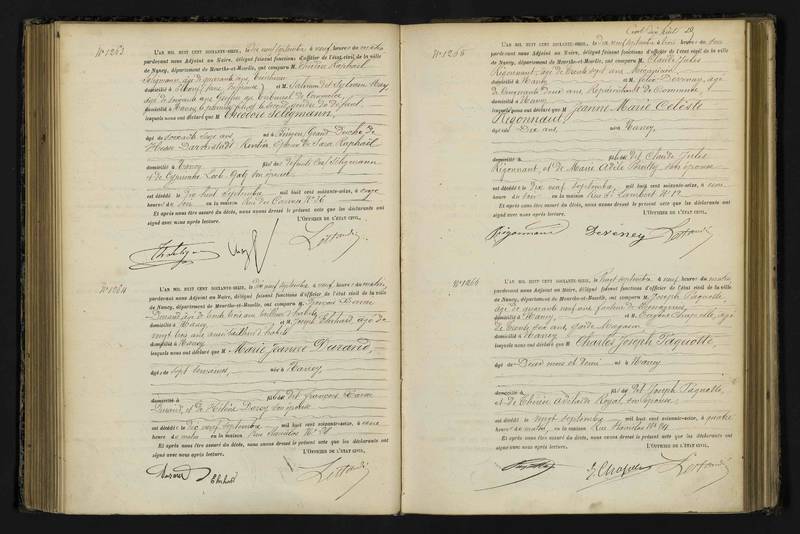 Nº 1263
L'AN MIL HUIT CENT SOIXANTE-SEIZE, le dix neuf septembre à neuf heures du matin
pardevant nous Adjoint au Maire, délégué faisant fonctions d'officier de l'état civil de la ville
de Nancy, département de Meurthe-et-Moselle, ont comparu M. Théodore Raphaël
Seligmann, âgé de quarante ans,
domicilié à et M. Salomon dit Sylvain May
âgé de cinquante ans Greffier au Tribunal de Commerce
domicilié à Nancy, le premier fils et le second gendre du défunt
lesquels nous ont déclaré que M Théodore Seligmann,
âgé de soixante sept ans né à Bingen Grand Duché de
Hesse Darmstadt Rentier époux de Sara Raphaël
domicilié à Nancy fils de défunts Seligmann
et de son épouse
est décédé le dix huit septembre mil huit cent soixante-seize, à onze
heures du soir en la maison Rue des Carmes Nº 26
Et après nous être assuré du décès, nous avons dressé le présent acte que les déclarants ont
signé avec nous après lecture. L'OFFICIER DE L'ÉTAT CIVIL,
Nº 1264
L'AN MIL HUIT CENT SOIXANTE-SEIZE, le dix neuf septembre à neuf heures du matin,
pardevant nous Adjoint au Maire, délégué faisant fonctions d'officier de l'état civil de la ville
de Nancy, département de Meurthe-et-Moselle, ont comparu M. François
Durand âgé de trente trois ans tailleur d'habits
domicilié à Nancy et M. Joseph Ehrhard âgé de
vingt trois ans aussi tailleur d'habits
domicilié à Nancy
lesquels nous ont déclaré que M Marie Jeanne Durand,
âgée de sept semaines, née à Nancy,
domicilié à fille de dit François
Durand, et de Hélène son épouse
est décédée le dix neuf septembre mil huit cent soixante-seize, à une
heure du matin en la maison Rue Stanislas Nº 84
Et après nous être assuré du décès, nous avons dressé le présent acte que les déclarants ont
signé avec nous après lecture. L'OFFICIER DE L'ÉTAT CIVIL,
Durand Ehrhard
Cent dix huit
Nº 1265
L'AN MIL HUIT CENT SOIXANTE-SEIZE, le dix neuf septembre à trois heures du soir
pardevant nous Adjoint au Maire, délégué faisant fonctions d'officier de l'état civil de la ville
de Nancy, département de Meurthe-et-Moselle, ont comparu M. Claude Jules
Rigonnaut, âgé de trente sept ans Mécanicien
domicilié à Nancy et M. Félix Derveney, âgé
de cinquante deux ans, Représentant de Commerce
domicilié à Nancy
lesquels nous ont déclaré que M Jeanne Marie Céleste
Rigonnaut
âgée de dix ans, née à Nancy,
domicilié à fille de dit Claude Jules
Rigonnaut, et de Marie Adèle son épouse
est décédée le dix neuf septembre mil huit cent soixante-seize, à une
heure du soir en la maison Rue St Lambert Nº 12
Et après nous être assuré du décès, nous avons dressé le présent acte que les déclarants ont
signé avec nous après lecture. L'OFFICIER DE L'ÉTAT CIVIL,
Rigonnaut Derveney
Nº 1266
L'AN MIL HUIT CENT SOIXANTE-SEIZE, le vingt septembre à neuf heures du matin,
pardevant nous Adjoint au Maire, délégué faisant fonctions d'officier de l'état civil de la ville
de Nancy, département de Meurthe-et-Moselle, ont comparu M. Joseph Paquotte,
âgé de quarante neuf ans
domicilié à Nancy, et M. Eugène Chapelle, âgé
de trente six ans, Garde Magasin
domicilié à Nancy
lesquels nous ont déclaré que M Charles Joseph Paquotte,
âgé de deux mois et demi né à Nancy
domicilié à fils de dit Joseph Paquotte,
et de Thérèse Adélaïde Royal son épouse
est décédé le vingt septembre mil huit cent soixante-seize, à quatre
heures du matin, en la maison Rue Stanislas Nº 84
Et après nous être assuré du décès, nous avons dressé le présent acte que les déclarants ont
signé avec nous après lecture. L'OFFICIER DE L'ÉTAT CIVIL,